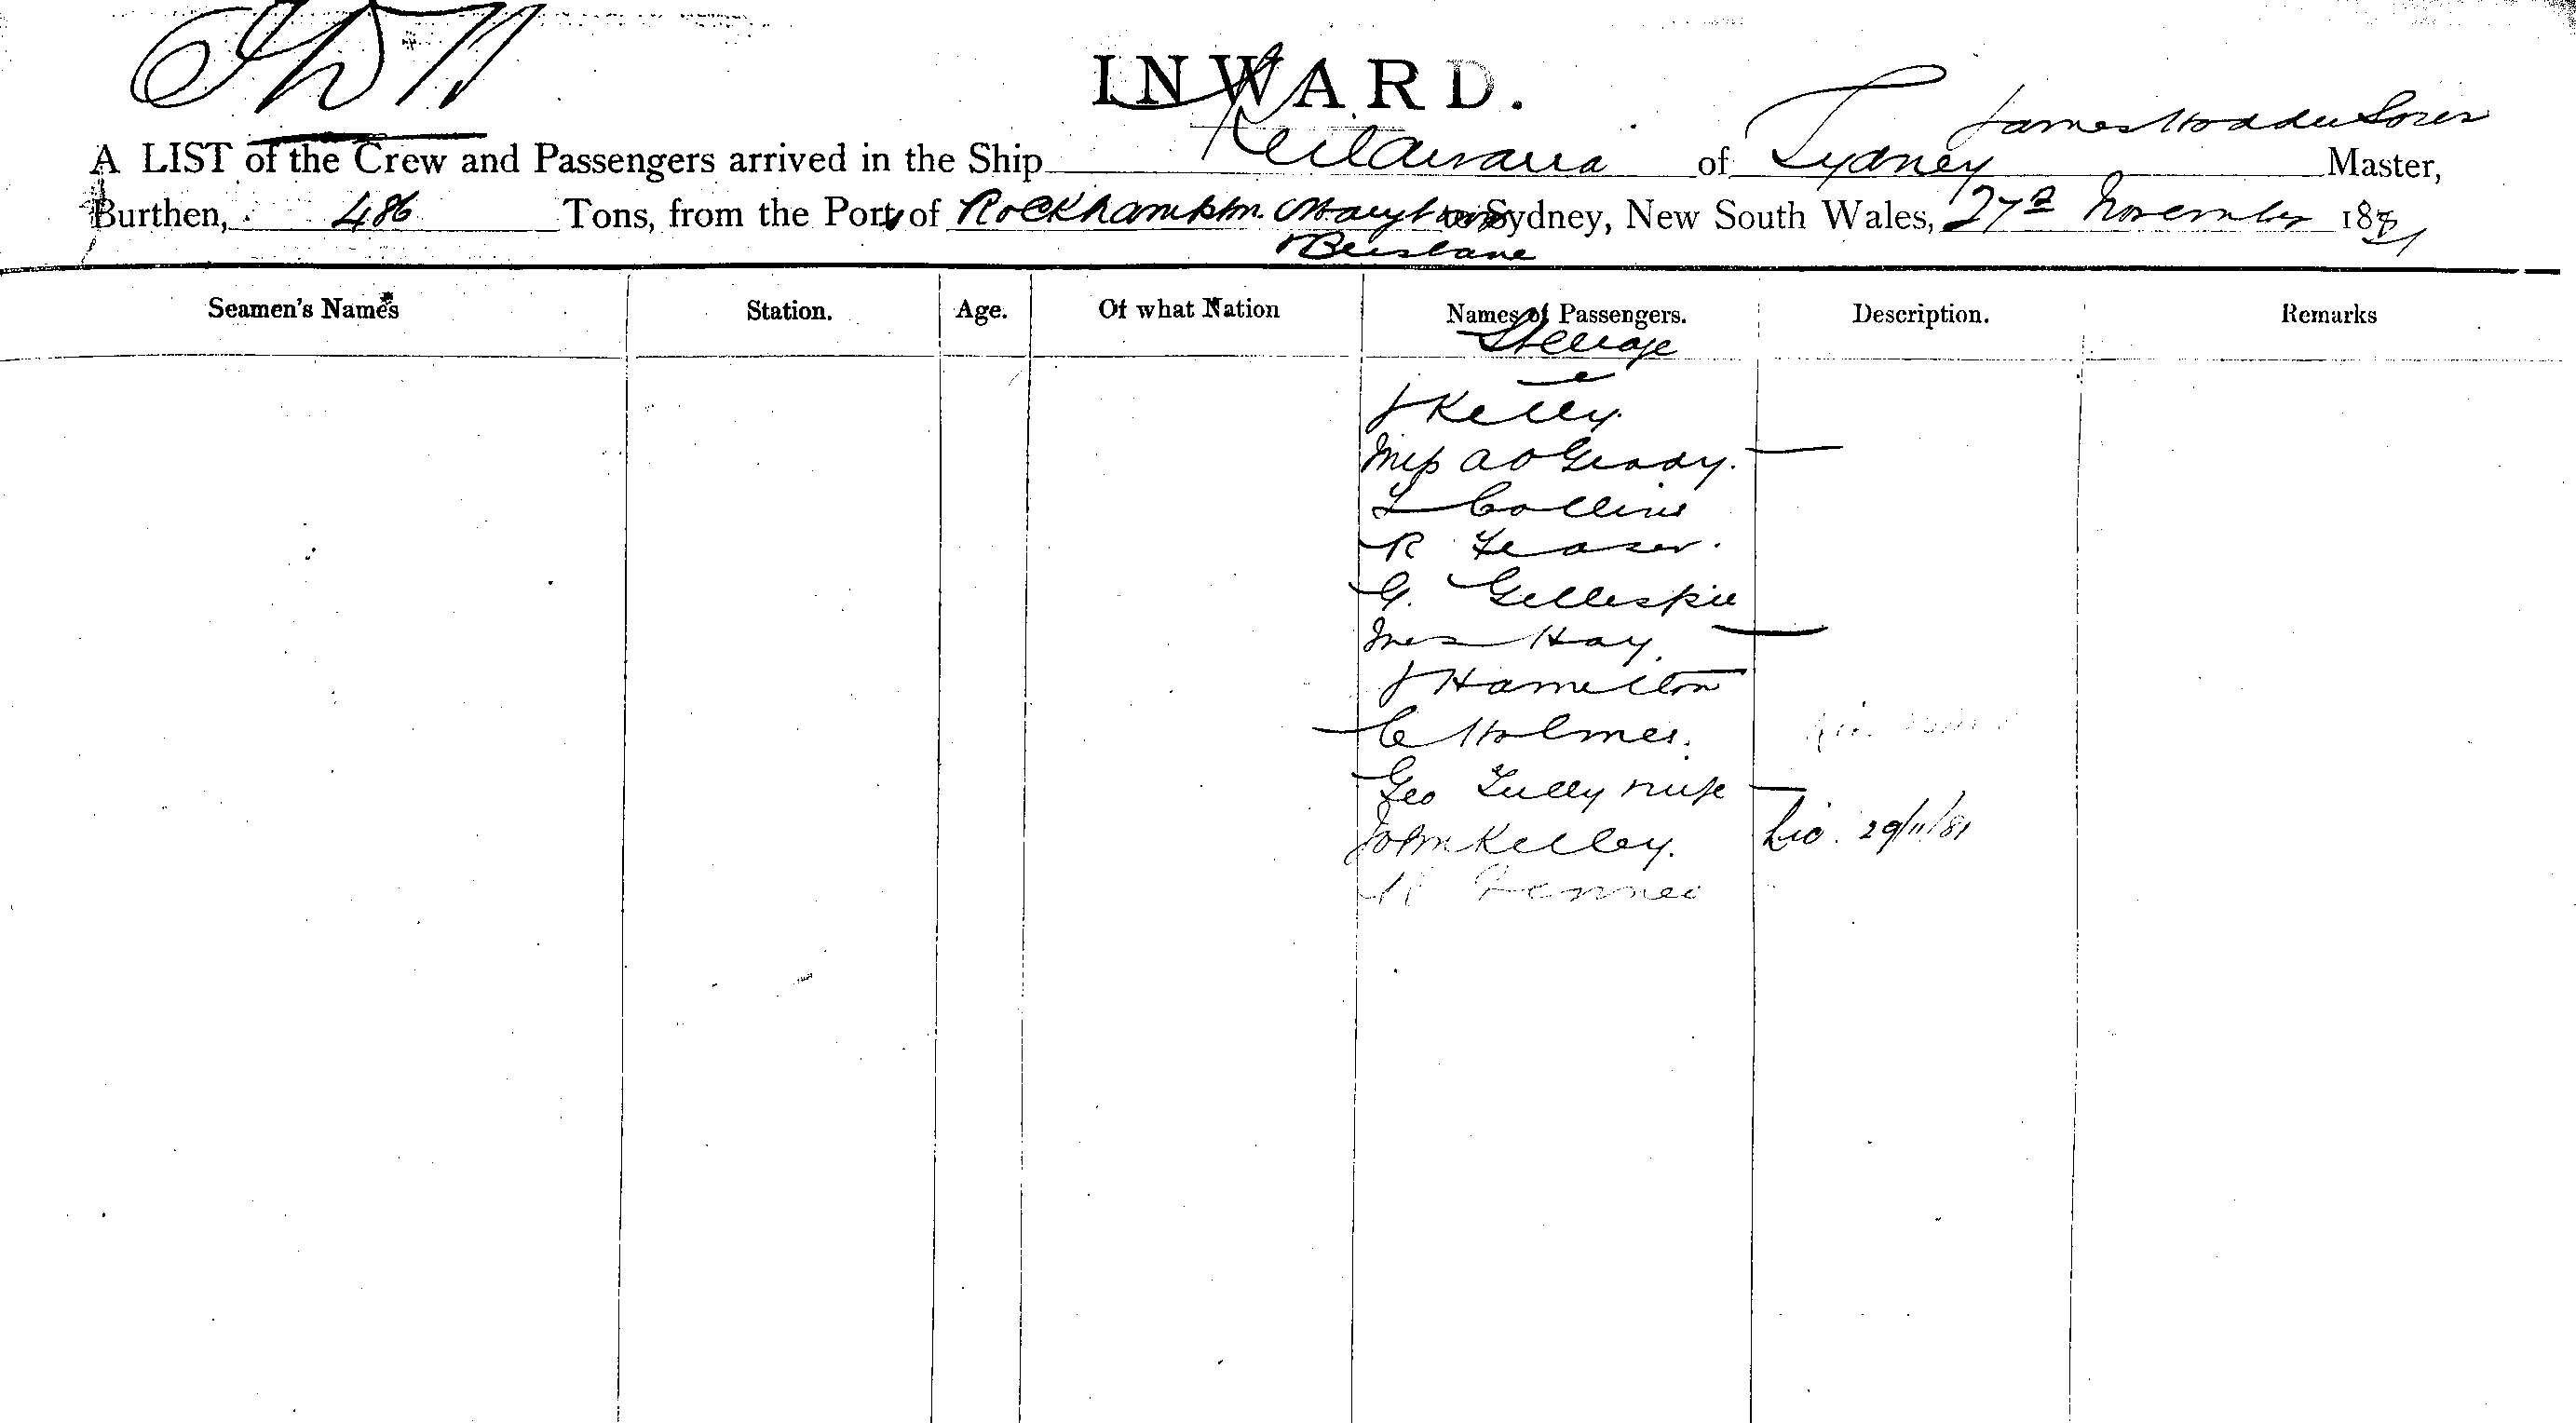 INWARD.
James Hodder Sorer
A LIST of the Crew and Passengers arrived in the Ship Keilawarra of Sydney Master,
Burthen, 486 Tons, from the Ports of Rockhampton. Maryboro to Sydney, New South Wales, 27th November 1881
& Brisbane
Seamen's Names Station. Age. Of what Nation Names of Passengers. Description. Remarks
Steerage
J Kelly.
Miss A O Grady.
L Collins
R Fraser.
G. Gillespie
Mrs Hay.
J Hamilton
C Holmes.
Geo Tully
John Kelley. 29/11/81
R Fenner